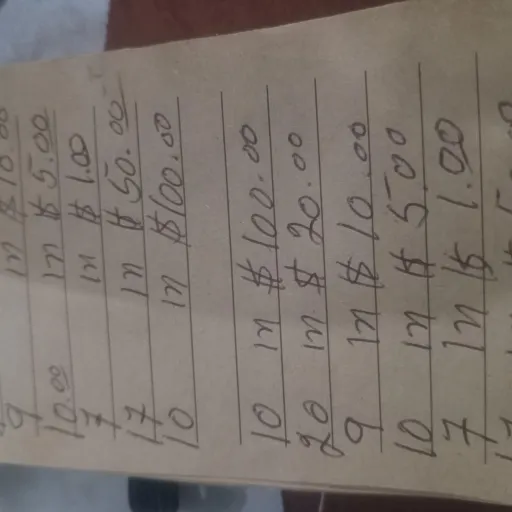 9 in $10.00
10.00 in $5.00
7 in $1.00
17 in $50.00
10 in $100.00
10 in $100.00
20 in $20.00
9 in $10.00
10 in $5.00
7 in $1.00